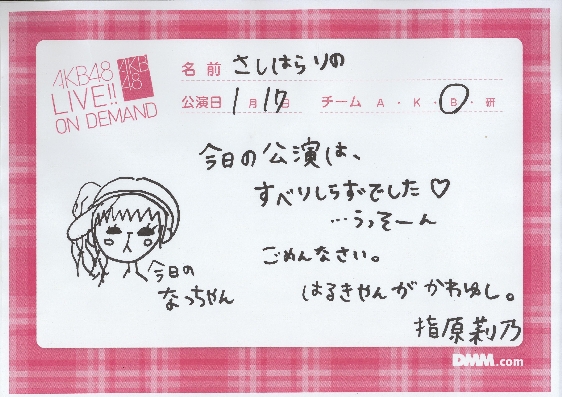 AKB48
LIVE!!
ON DEMAND
AKB
48
名前 さしはらりの
公演日 1月17日 チーム A・K・B・研
今日の公演は、
すべりしらずでした♡
…うっそーん
ごめんなさい。
はるきゃんが かわゆし。
今日の
なっちゃん
指原莉乃
DMM.com